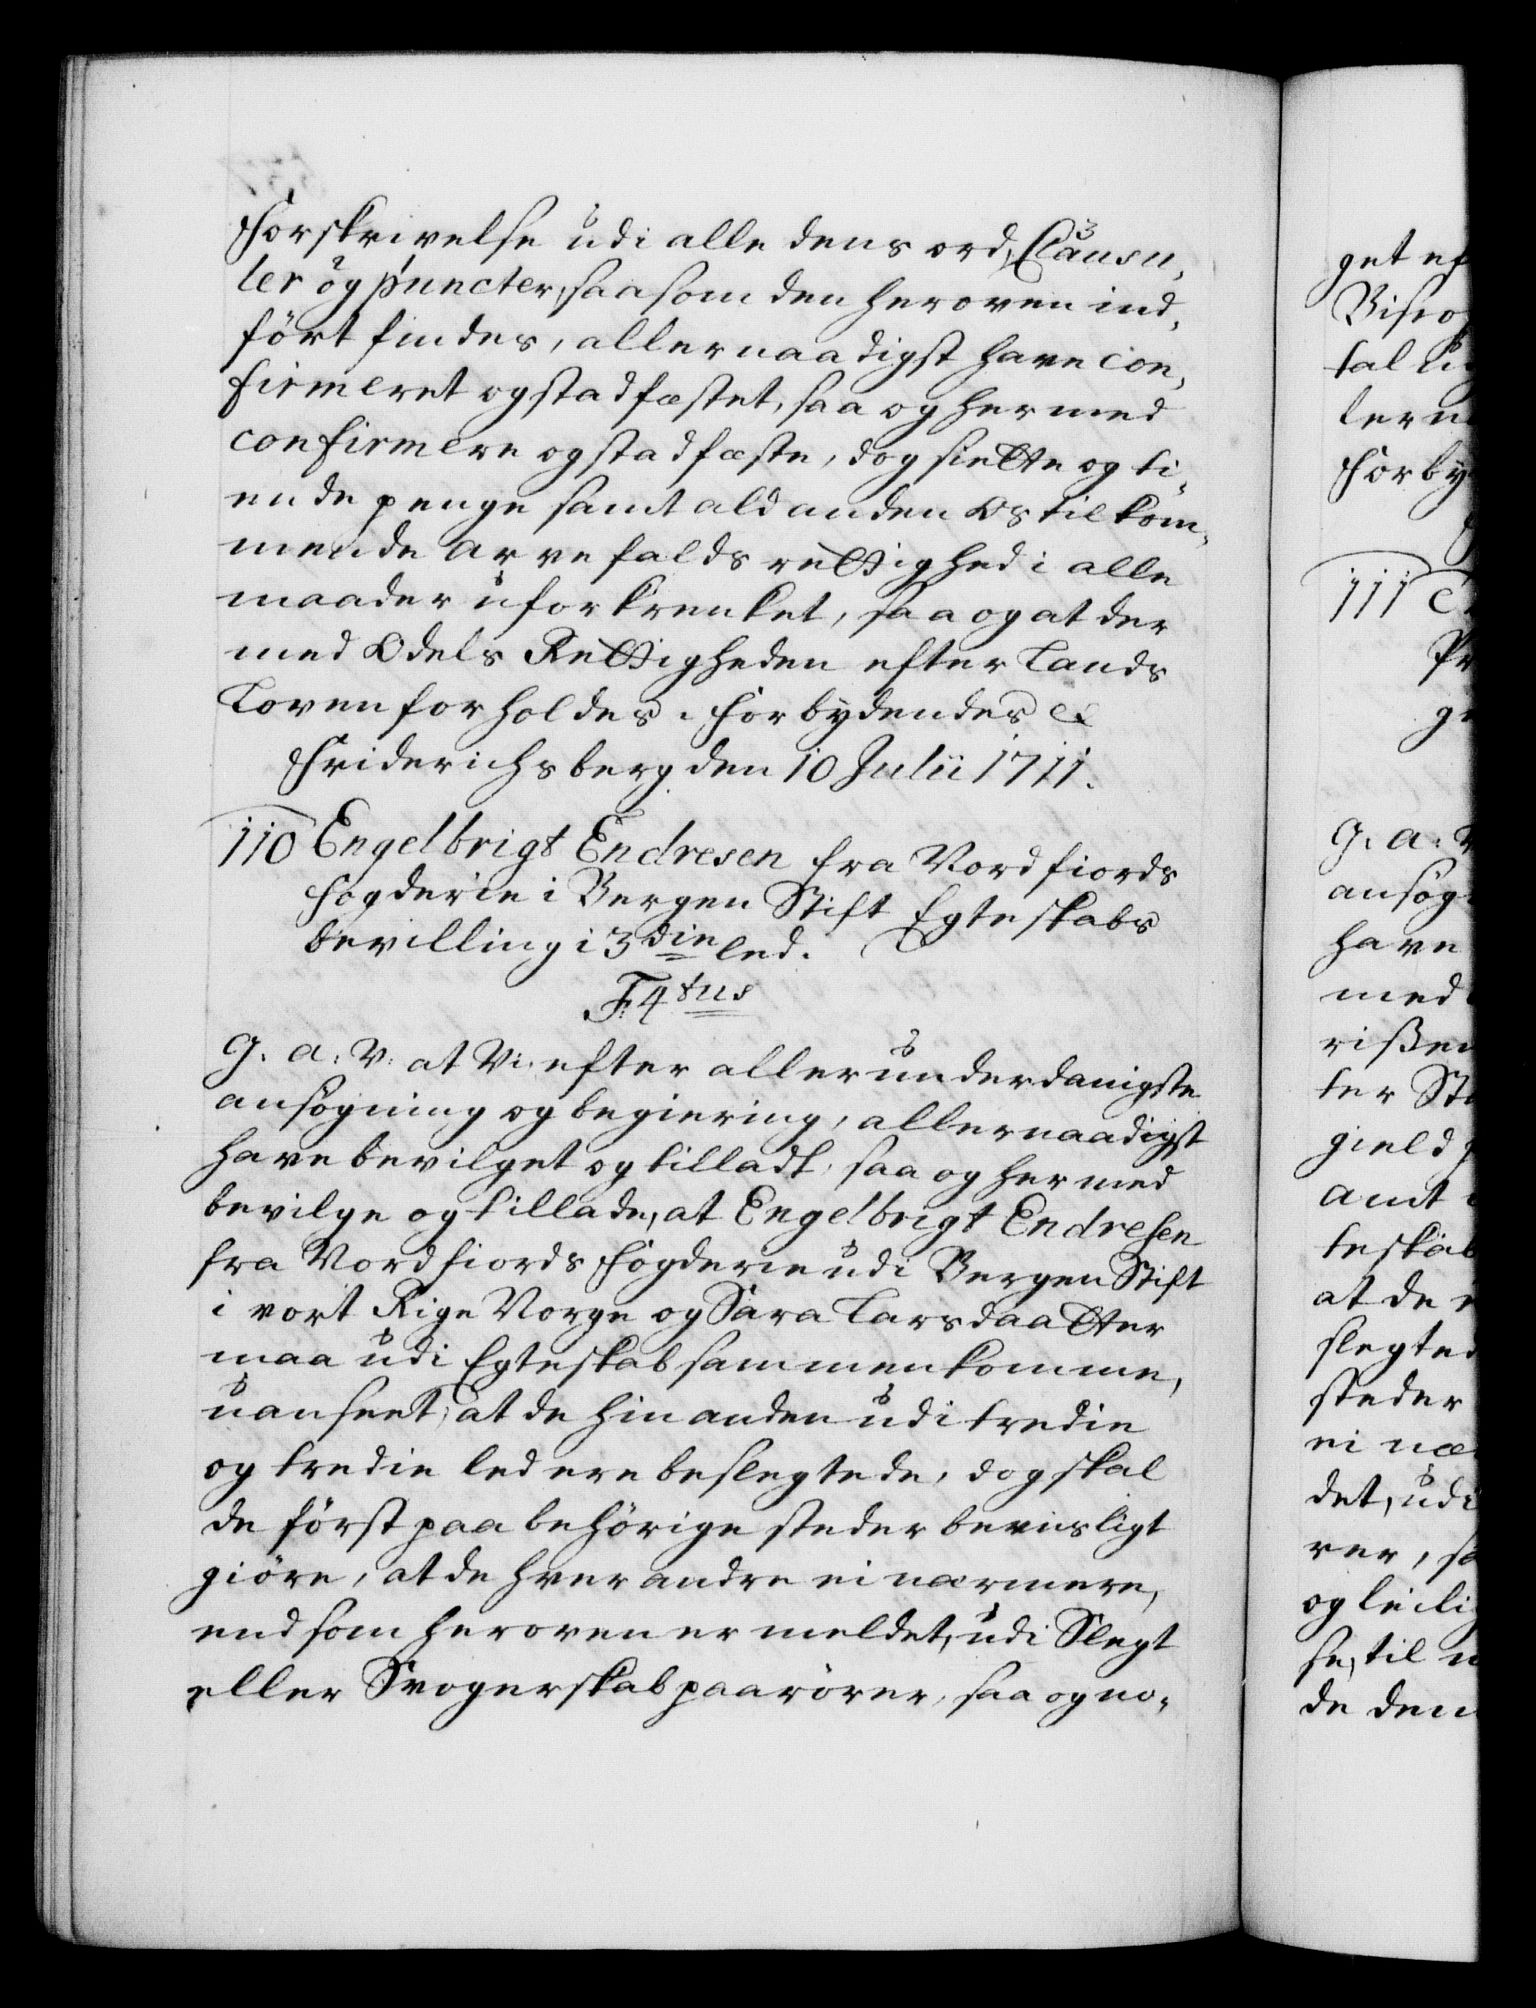 Forskrivelse udi alle dens ord, Clausu,
ler og puncter, saa som den her oven ind,
fört findes, allernaadigst have con,
firmeret og stadfæstet, saa og hermed
confirmere og stadfæste, dog siette og ti,
ende penge samt ald anden Os tilkom,
mende arvefalds rettighed i alle
maader uforkrenket, saa og at der
med Odels Rettigheden efter Lands
Loven forholdes. Forbydendes &
Friderichsberg den 10 Julii 1711.
110 Engelbrigt Endresen fra Nordfiords
Fogderie i Bergen Stift Egteskabs
bevilling i 3die led.
F. 4tus
G. a: V: at Vi efter allerunderdanigste
ansögning og begiering, allernaadigst
have bevilget og tilladt, saa og hermed
bevilge og tillade, at Engelbrigt Endresen
fra Nordfiords Fogderie udi Bergen Stift
i vort Rige Norge og Sara Larsdaatter
maa udi Egteskab sammenkomme,
uanseet, at de hinanden udi tredie
og tredie led ere beslegtede, dog skal
de först paa behörige steder bevisligt
giöre, at de hverandre ei nærmere,
end som heroven er meldet, udi Slegt
eller Svogerskab paarörer, saa og no,
get ef
Bisro
tal
ler
Forby
111
Pr
G. a: V
ansög
have
med
rißen
ter St
gield
amt
teskab
at de
slegted
steder
ei næ
det, udi
rer, sa
og leili
se, til
de den